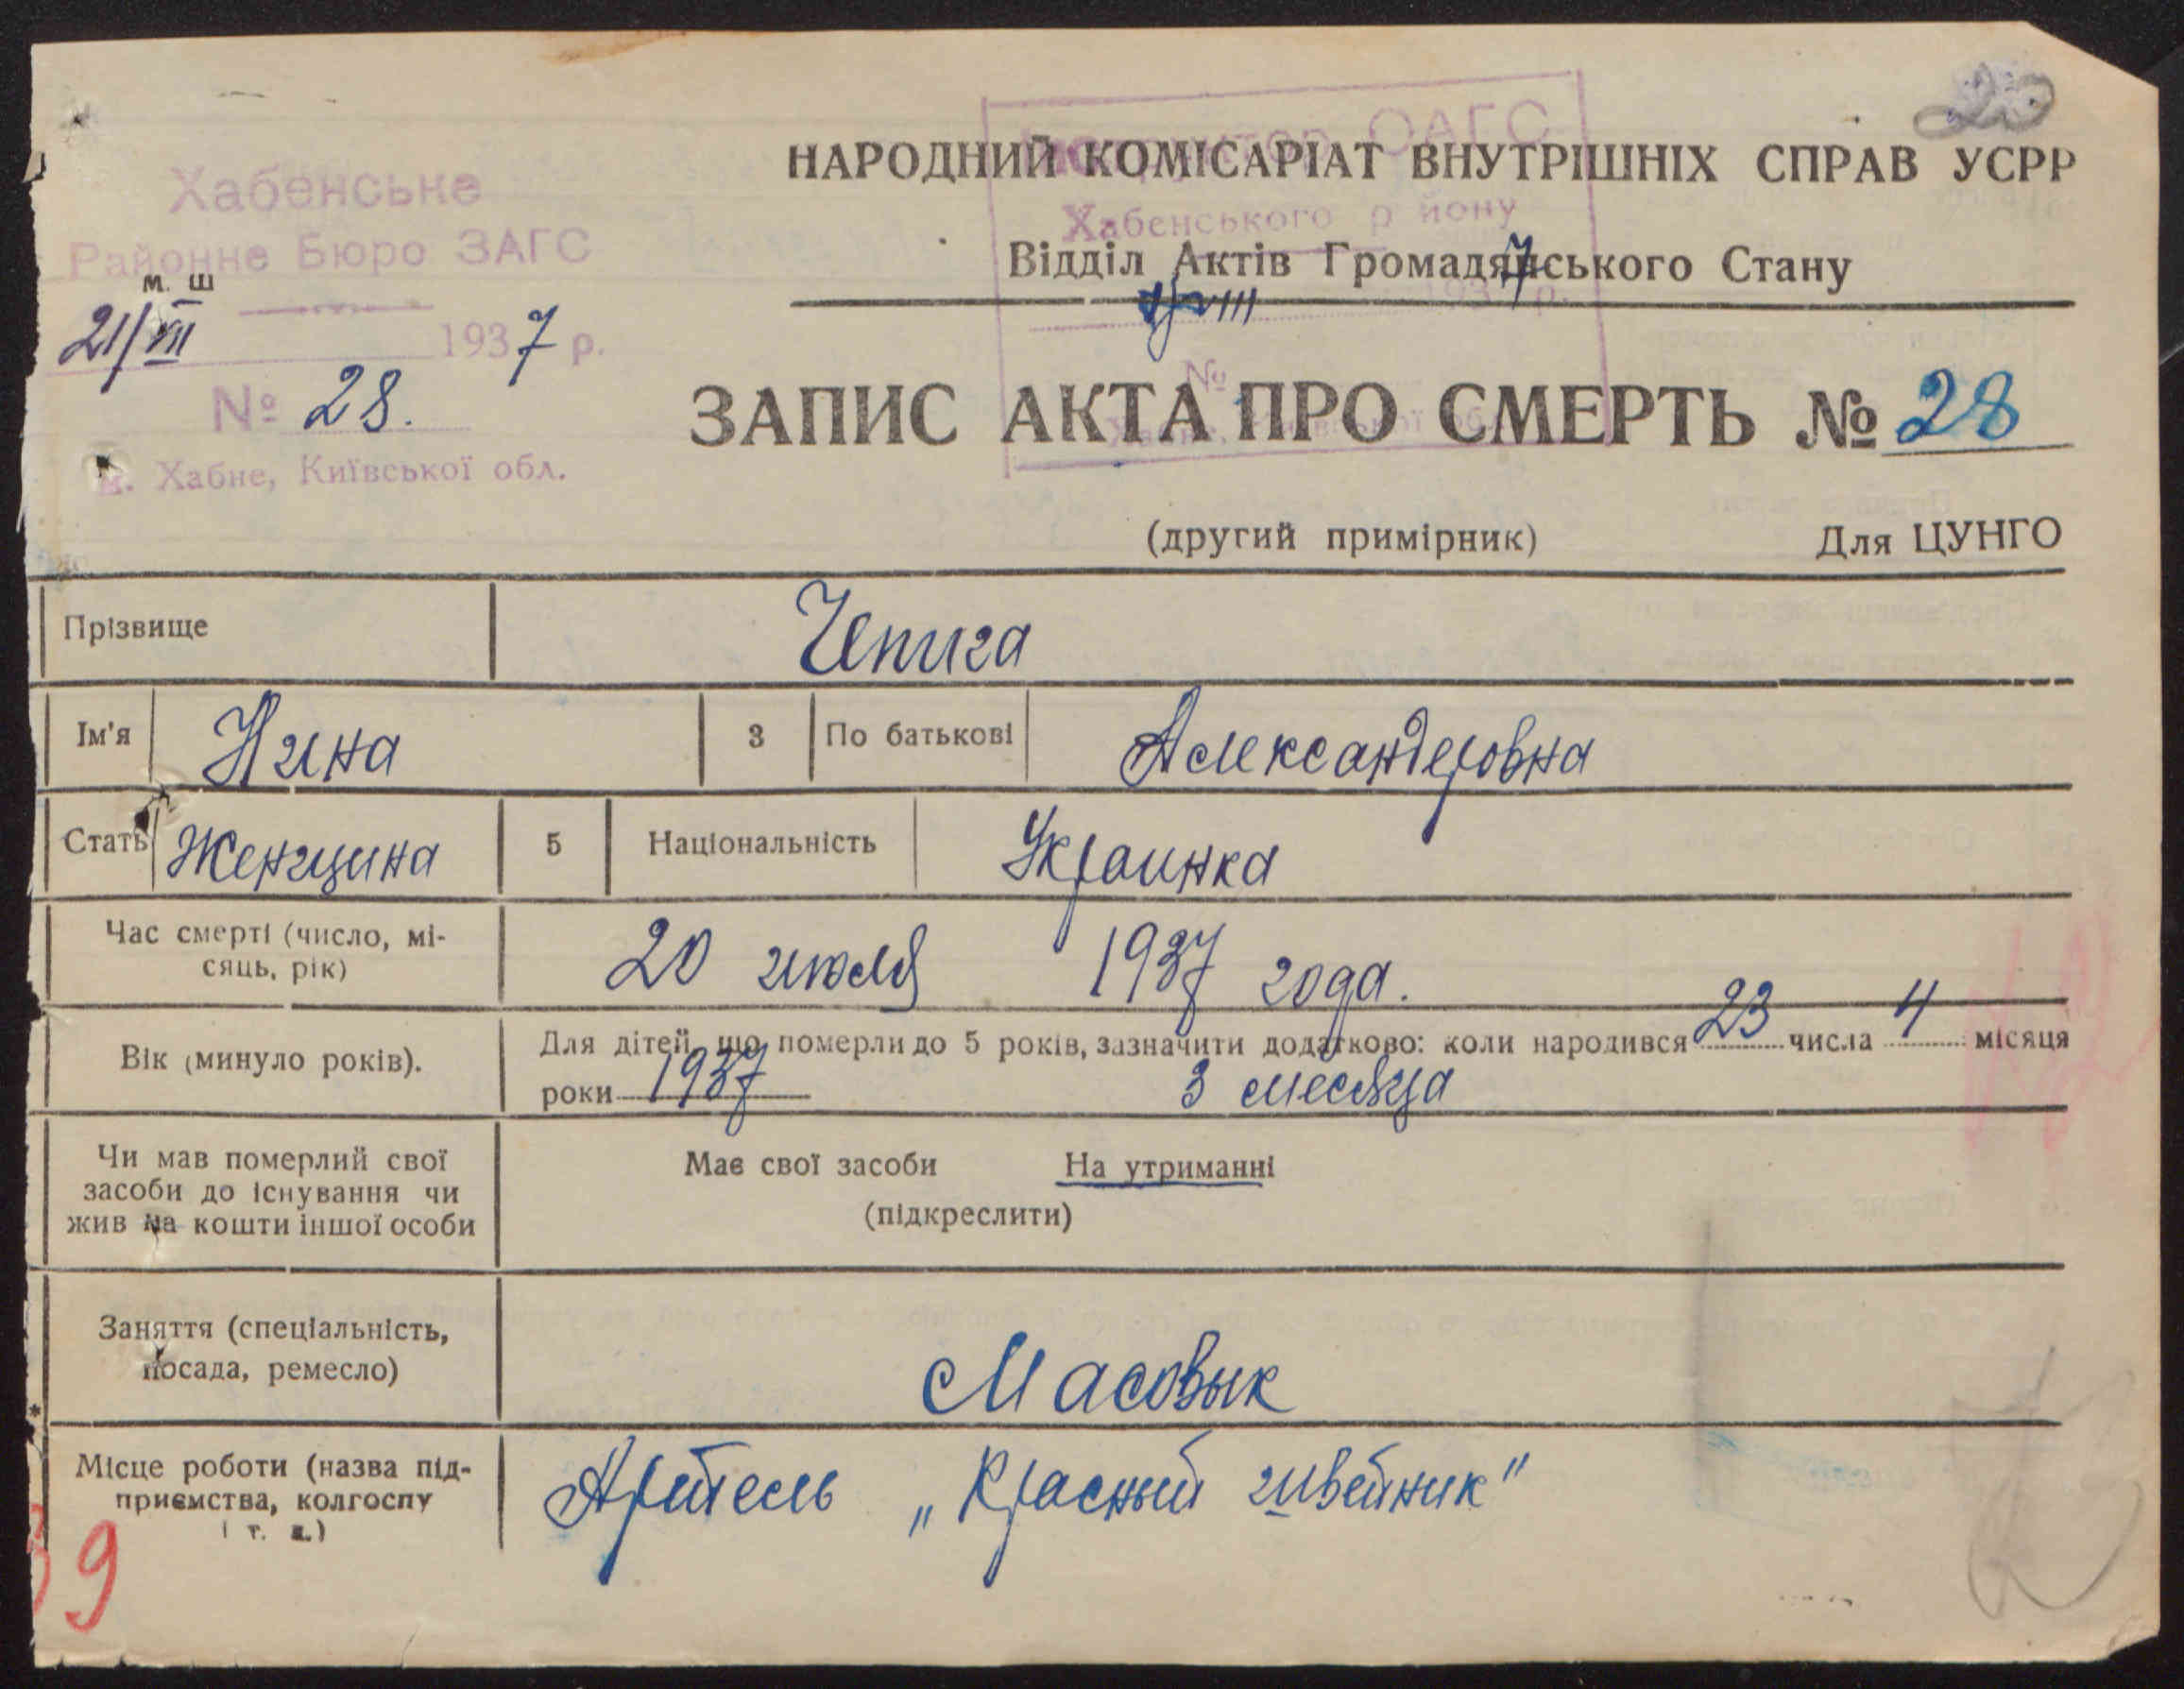 20
Хабенське
Районне Бюро ЗАГС
м. ш
21/VII 1937 р.
№ 28.
м. Хабне, Київської обл.
ОАГС
Хабенського р йону
VIII 1937 р.
№
НАРОДНИЙ КОМІСАРІАТ ВНУТРІШНІХ СПРАВ УСРР
Відділ Актів Громадянського Стану
ЗАПИС АКТА ПРО СМЕРТЬ № 28
(другий примірник) Для ЦУНГО
Прізвище Чепига
Ім'я Нина 3 По батькові Александеровна
Стать Женщина 5 Національність Украинка
Час смерті (число, мі-
сяць, рік) 20 июля 1937 года.
Вік (минуло років). Для дітей, що померли до 5 років, зазначити додатково: коли народився 23 числа 4 місяця
роки 1937 3 месяца
Чи мав померлий свої
засоби до існування чи
жив на кошти іншої особи
Має свої засоби На утриманні
(підкреслити)
Заняття (спеціальність,
посада, ремесло) Масовык
Місце роботи (назва під-
приємства, колгоспу
і т. д.)
Артель „Красный швейник"
39